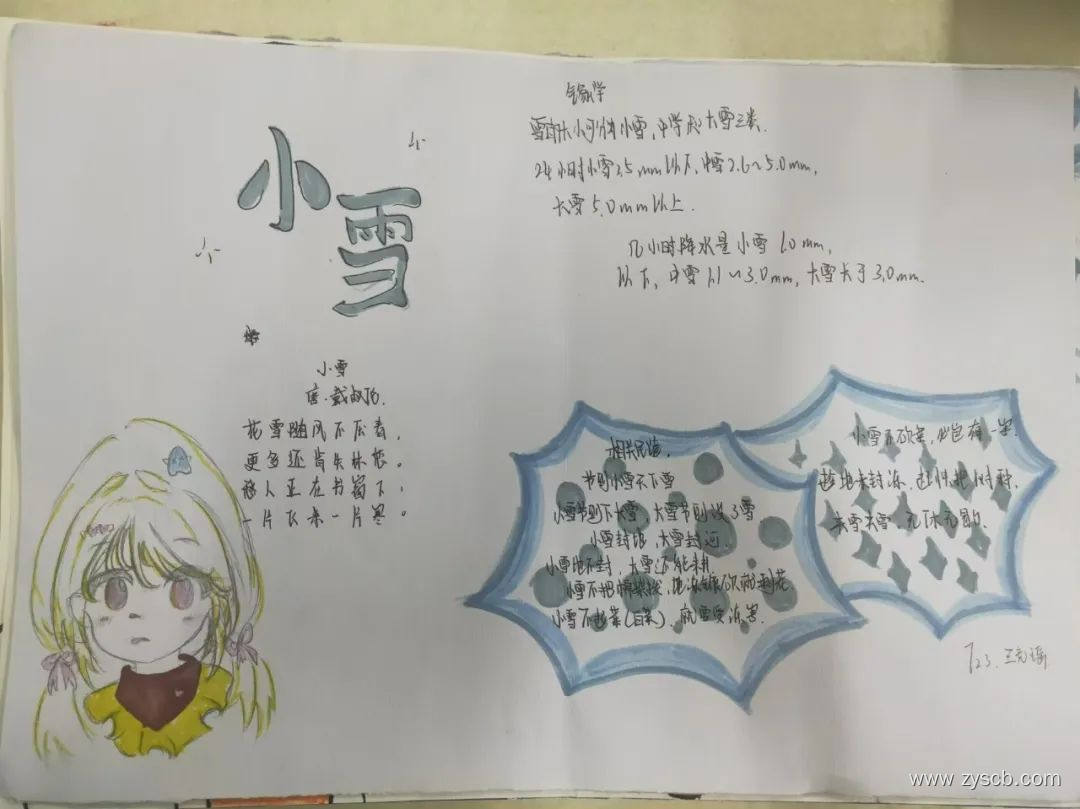 小雪
气象学
雪有大小可分为小雪,中雪和大雪三类.
24小时小雪2.5mm以下,中雪2.6~5.0mm,
大雪5.0mm以上.
几小时降水是小雪1.0mm,
以下,中雪1.1~3.0mm,大雪大于3.0mm.
小雪
唐·戴叔伦.
花雪随风不厌看,
更多还肯失林恋。
愁人正在书窗下,
一片飞来一片寒。
相关民谚,
节到小雪天下雪
小雪节到下大雪,大雪节到没了雪.
小雪封地,大雪封河.
小雪地不封,大雪还能耕.
小雪不起菜(白菜),就要受冻害.
小雪不砍菜,必定有一害.
趁地未封冻,赶快把
723.王
www.zyscb.com